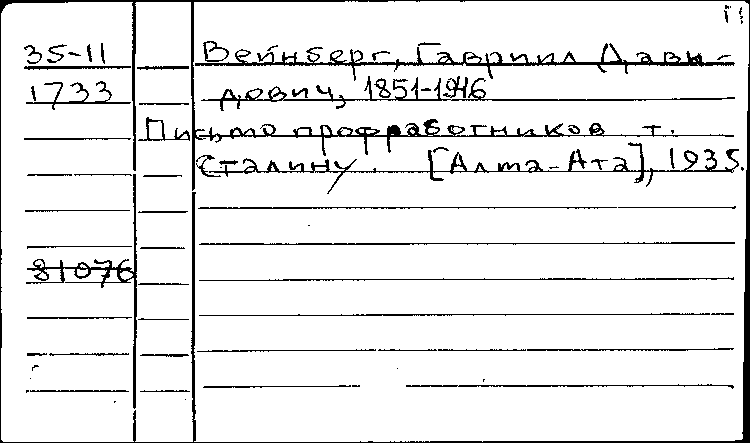 35-11 Вейнберг, Гавриил Дави-
1733 дович, 1851-1946
Письмо профработников т.
Сталину. [Алма-Ата], 1935.
81076